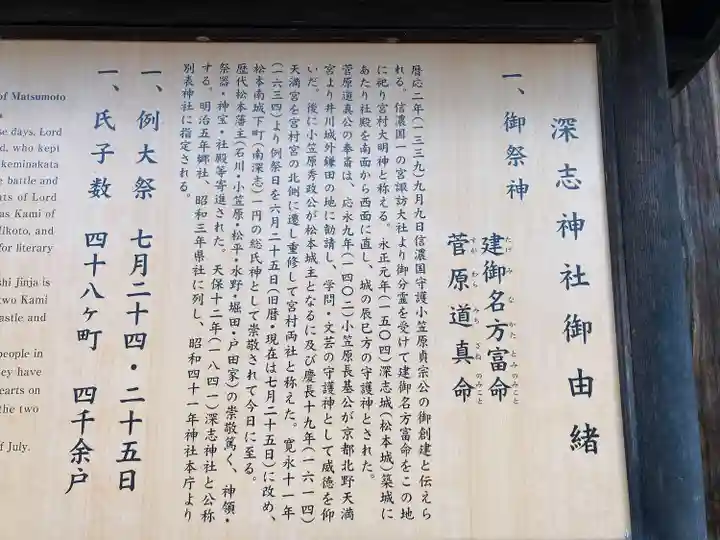 深志神社御由緒
一、御祭神
建御名方富命
たけみなかたとみのみこと
菅原道真命
すがわらみちざねのみこと
暦応二年(一三三九)九月九日信濃国守護小笠原貞宗公の御創建と伝えら
れる。信濃国一の宮諏訪大社より御分霊を受けて建御名方富命をこの地
に祀り宮村大明神と称える。永正元年(一五〇四)深志城(松本城)築城に
あたり社殿を南面から西面に直し、城の辰巳方の守護神とされた。
菅原道真公の奉斎は、応永九年(一四〇二)小笠原長基公が京都北野天満
宮より井川城外鎌田の地に勧請し、学問・文芸の守護神として威徳を仰
いだ。後に小笠原秀政公が松本城主となるに及び慶長十九年(一六一四)
天満宮を宮村宮の北側に遷し重修して宮村両社と称えた。寛永十一年
(一六三四)より例祭日を六月二十五日(旧暦・現在は七月二十五日)に改め、
松本南城下町(南深志)一円の総氏神として崇敬されて今日に至る。
歴代松本藩主(石川・小笠原・松平・水野・堀田・戸田家)の崇敬篤く、神領・
祭器・神宝・社殿等寄進された。天保十二年(一八四一)深志神社と公称
する。明治五年郷社、昭和三年県社に列し、昭和四十一年神社本庁より
別表神社に指定される。
一、例大祭 七月二十四・二十五日
一、氏子数 四十八ヶ町 四千余戸
of Matsumoto
se days, Lord
d, who kept
keminakata
e battle and
ats of Lord
as Kami of
Mikoto, and
for literary
shi Jinja is
two Kami
astle and
people in
ey have
earts on
the two
of July.